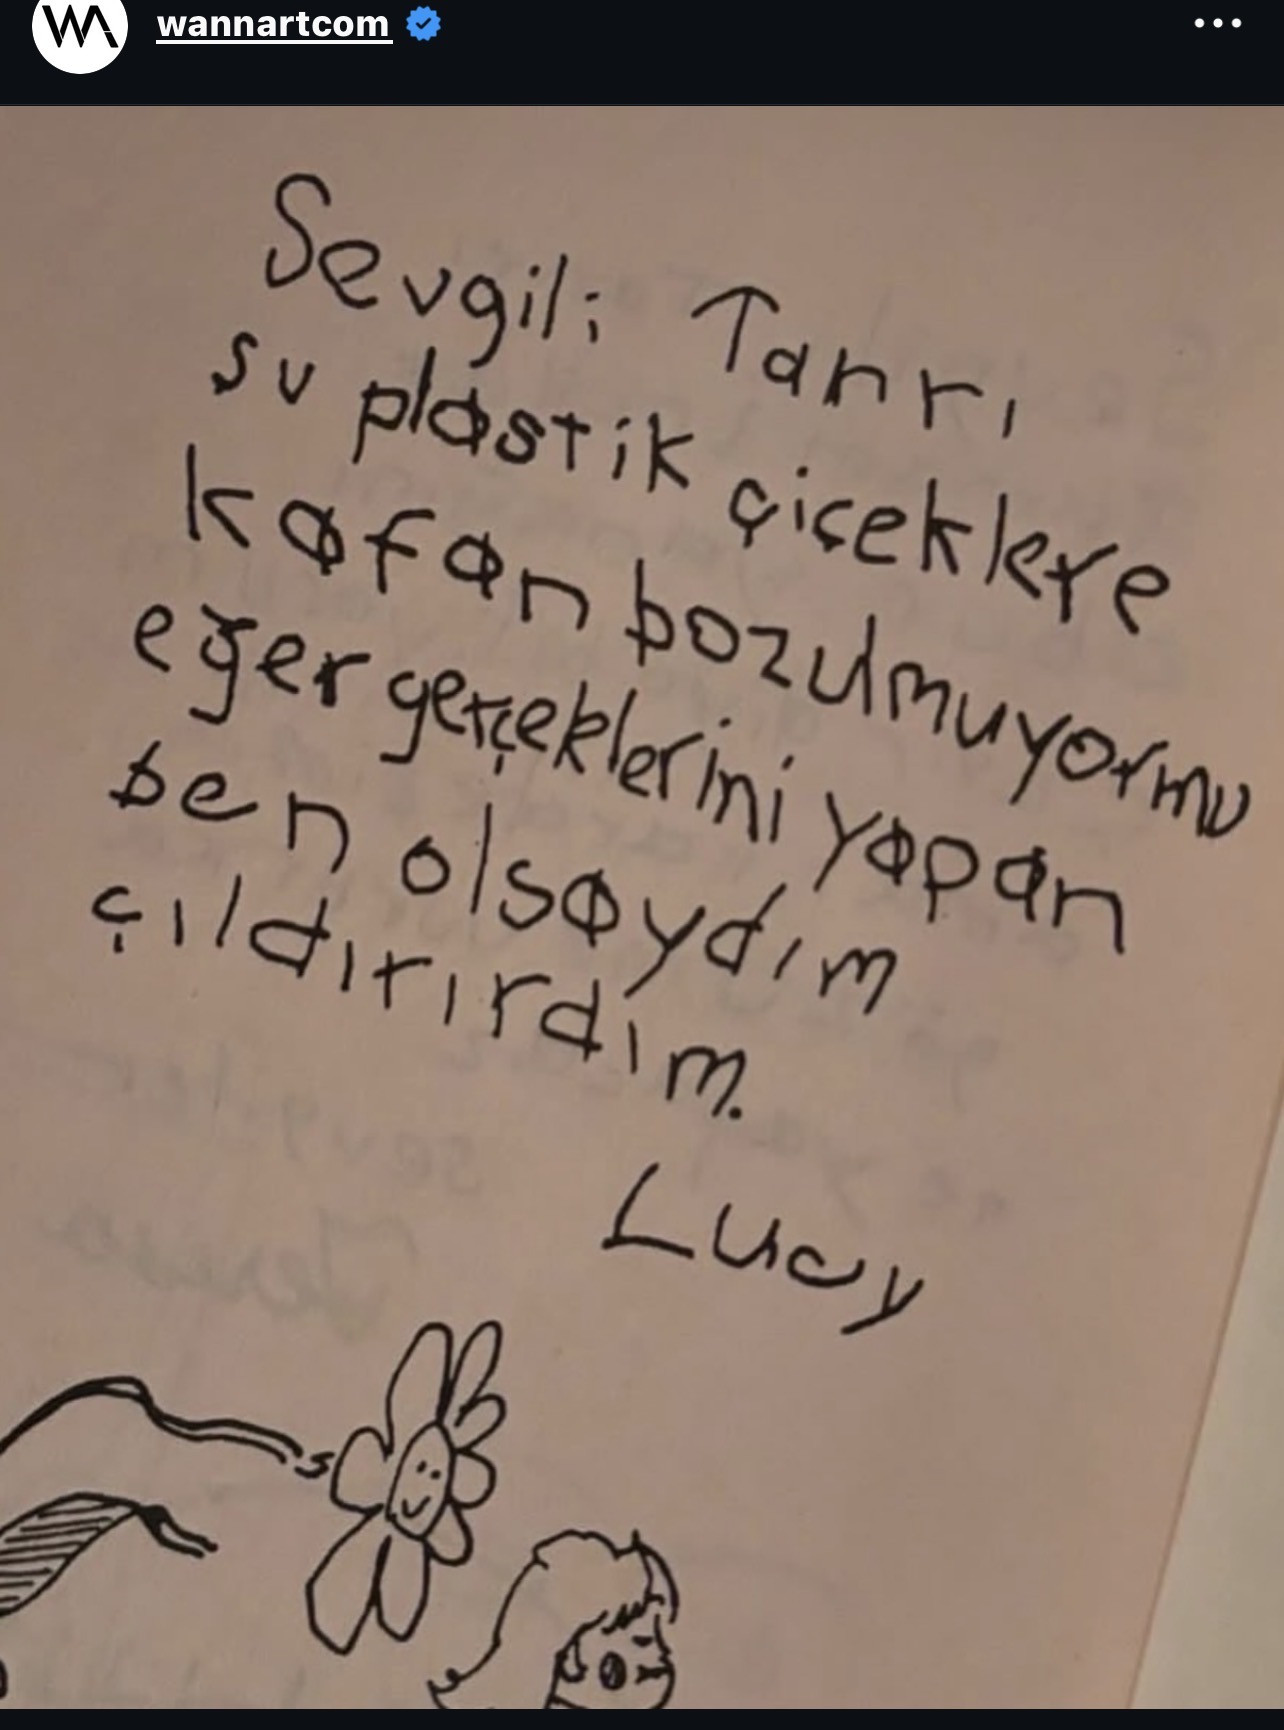 wannartcom
Sevgili Tanrı
su plastik çiçeklere
kafan bozulmuyormu
eğer gerçeklerini yapan
ben olsaydım
çıldırırdım.
Lucy